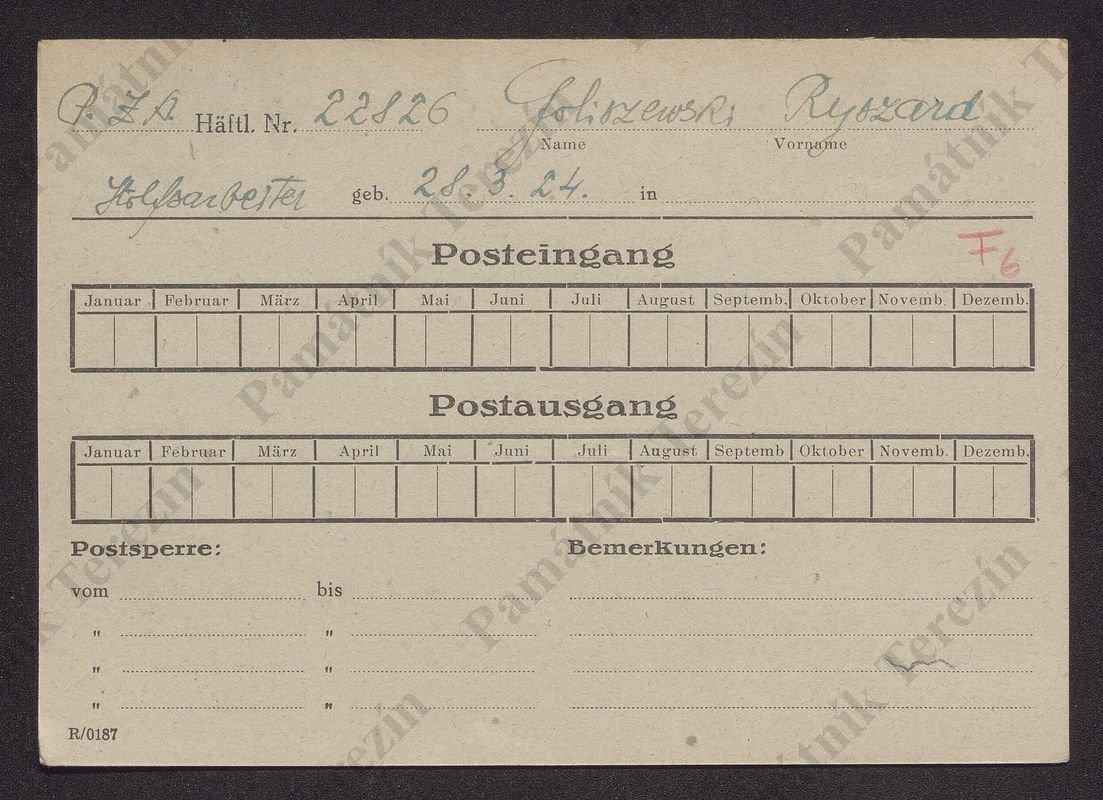 P. Z A. Häftl. Nr. 22826 Goliszewski Ryszard
Name Vorname
geb. 28. 3. 24. in
Posteingang
F 6
Januar Februar März April Mai Juni Juli August Septemb. Oktober Novemb. Dezemb.
Postausgang
Januar Februar März April Mai Juni Juli August Septemb Oktober Novemb. Dezemb.
Postsperre: Bemerkungen:
vom bis
" "
" "
" "
R/0187
Památník Terezín